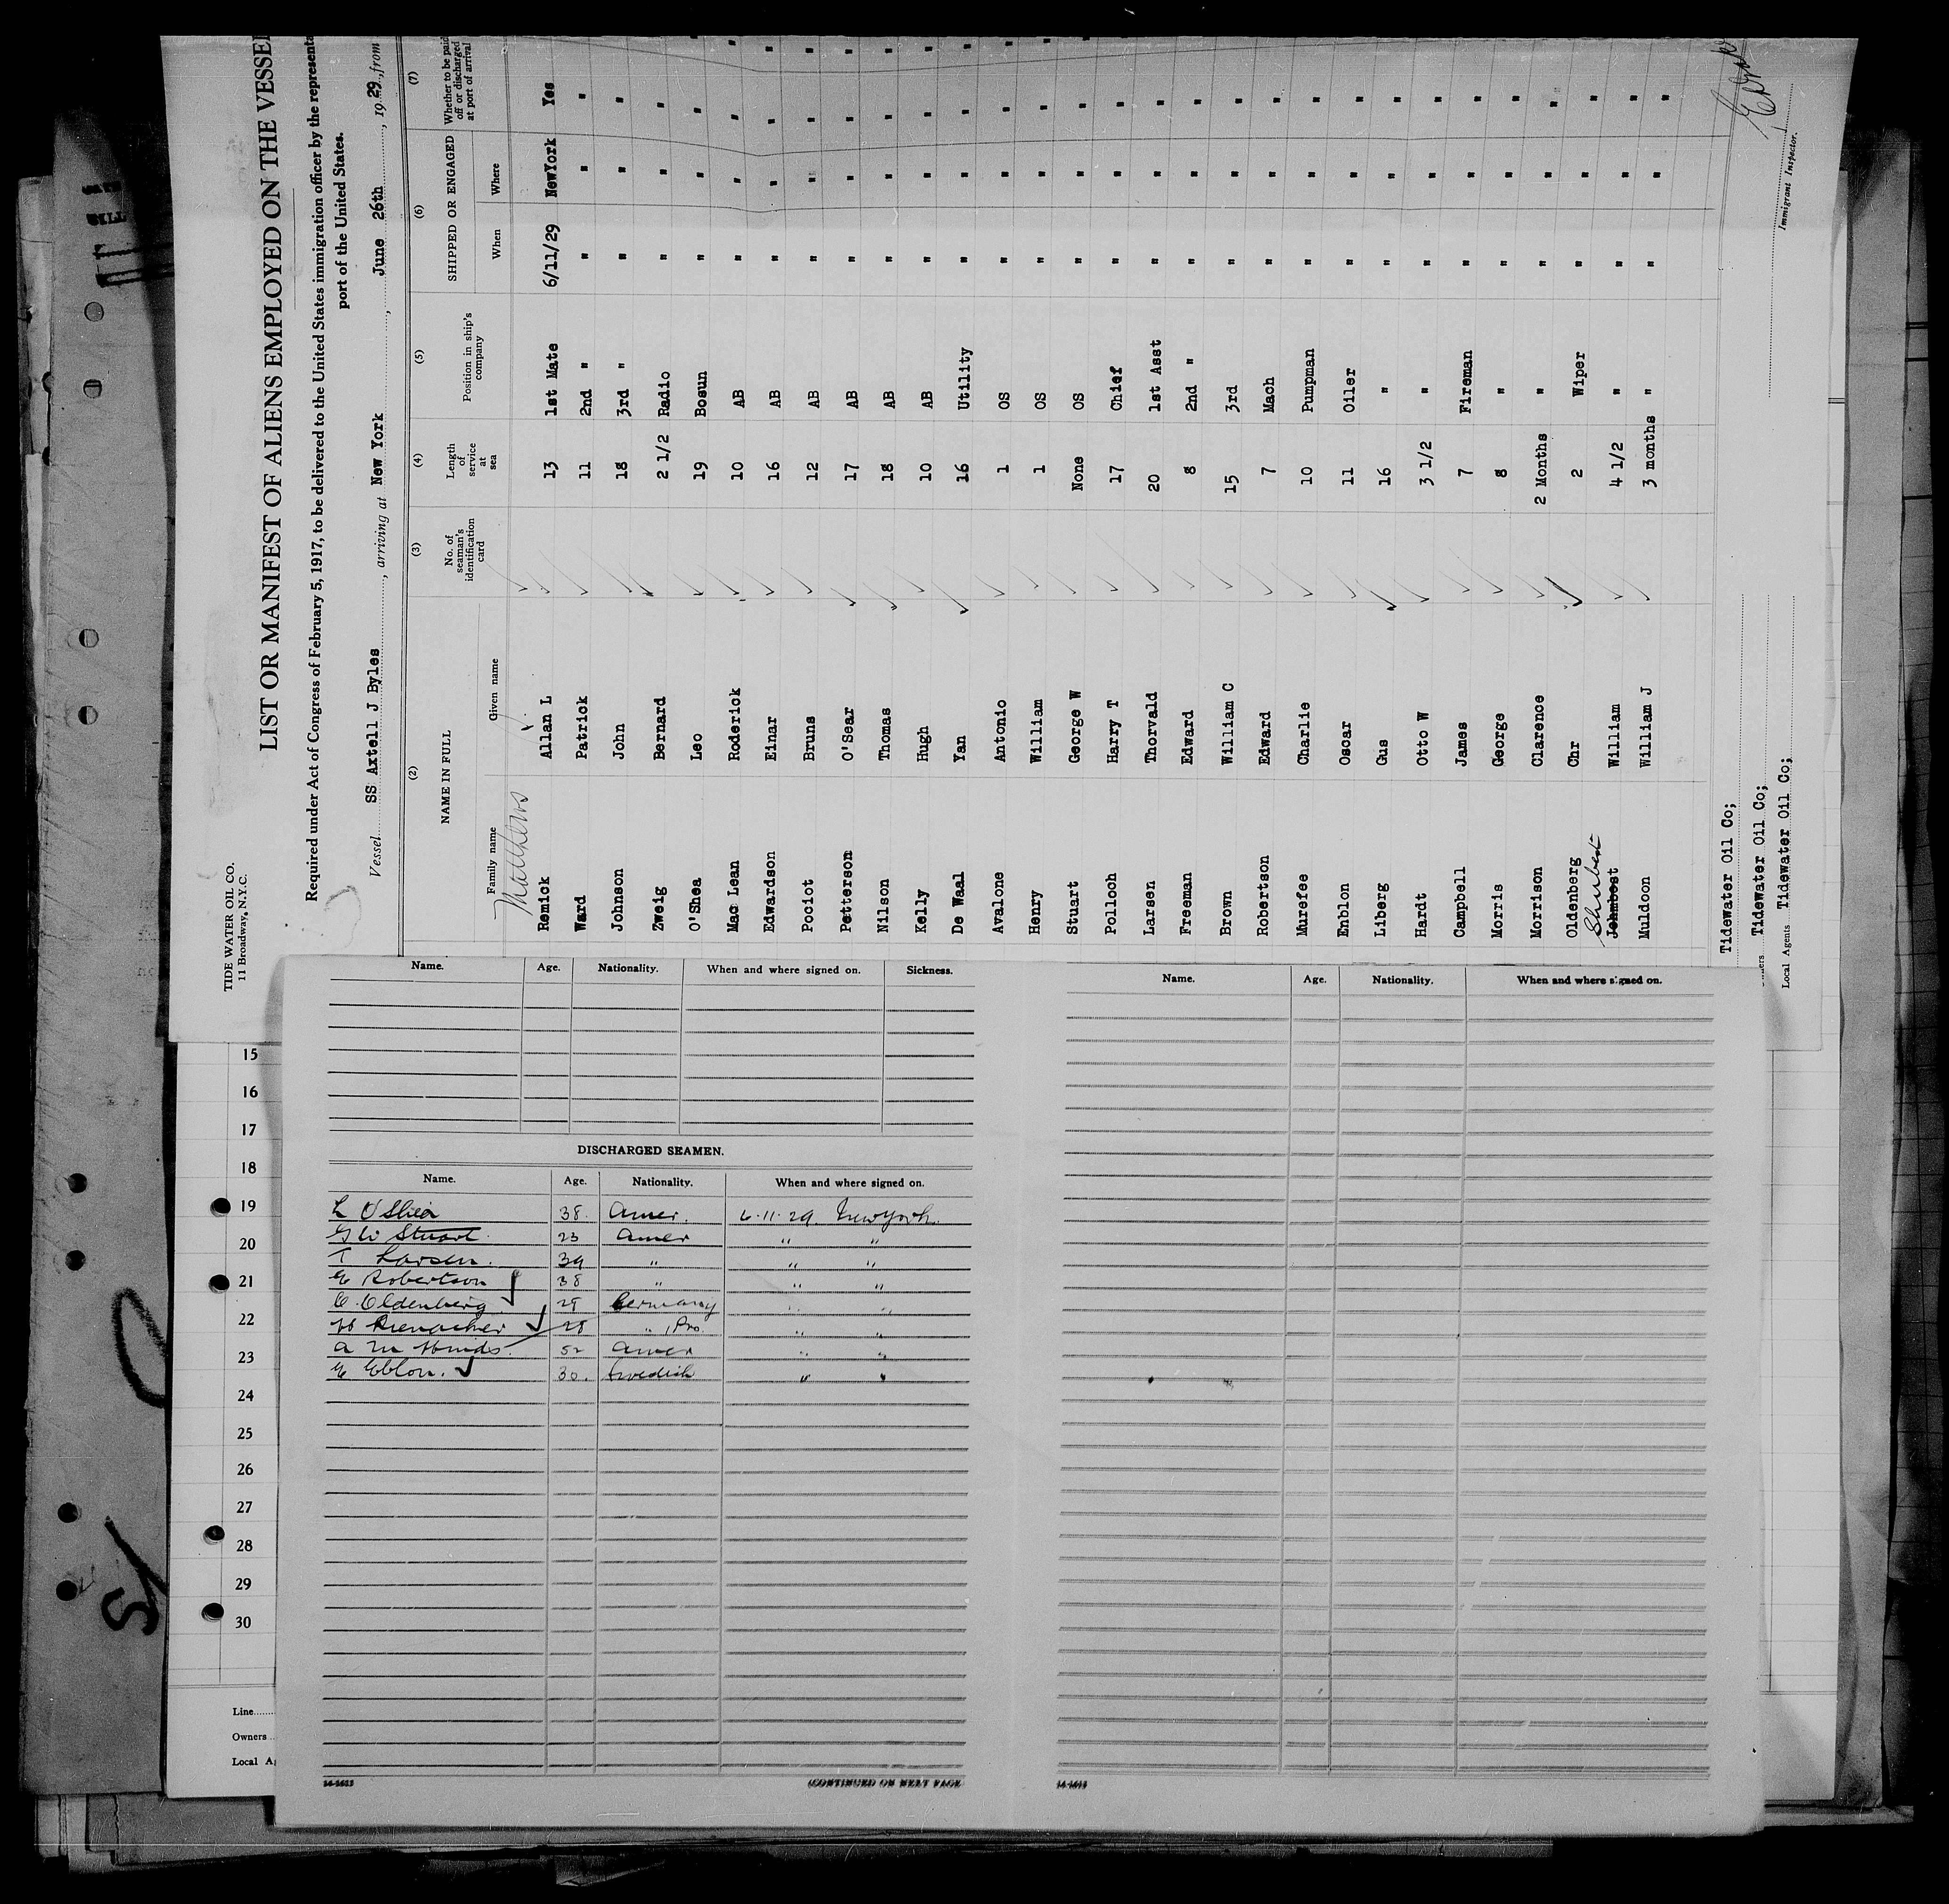 TIDE WATER OIL CO.
11 Broadway, N.Y.C.
LIST OR MANIFEST OF ALIENS EMPLOYED ON THE VESSEL
Required under Act of Congress of February 5, 1917, to be delivered to the United States immigration officer by the representa
port of the United States.
Vessel SS Axtell J Byles, arriving at New York, June 26th, 1929, from
(2) (3) (4) (5) (6) (7)
NAME IN FULL No. of seaman's identification card Length of service at sea Position in ship's company SHIPPED OR ENGAGED Whether to be paid off or discharged at port of arrival
Family name Given name When Where
Matthews
Remick Allan L 13 1st Mate 6/11/29 NewYork Yes
Ward Patrick 11 2nd " " " "
Johnson John 18 3rd " " " "
Zweig Bernard 2 1/2 Radio " " "
O'Shea Leo 19 Bosun " " "
Mac Lean Roderick 10 AB " " "
Edwardson Einar 16 AB " " "
Pociot Bruns 12 AB " " "
Petterson O'Sear 17 AB " " "
Nilson Thomas 18 AB " " "
Kelly Hugh 10 AB " " "
De Waal Yan 16 Utility " " "
Avalone Antonio 1 OS " " "
Henry William 1 OS " " "
Stuart George W None OS " " "
Polloch Harry T 17 Chief " " "
Larsen Thorvald 20 1st Asst " " "
Freeman Edward 8 2nd " " " "
Brown William C 15 3rd " " "
Robertson Edward 7 Mach " " "
Murefee Charlie 10 Pumpman " " "
Enblon Oscar 11 Oiler " " "
Liberg Gus 16 " " " "
Hardt Otto W 3 1/2 " " " "
Campbell James 7 Fireman " " "
Morris George 8 " " " "
Morrison Clarence 2 Months " " " "
Oldenberg Chr 2 Wiper " " "
Shubert
William 4 1/2 " " " "
Muldoon William J 3 months " " " "
Tidewater Oil Co;
Tidewater Oil Co;
Local Agents Tidewater Oil Co;
Immigrant Inspector.
Name. Age. Nationality. When and where signed on. Sickness.
DISCHARGED SEAMEN.
Name. Age. Nationality. When and where signed on.
L O'Shea 38. Amer. 6.11.29. New York
G W Stuart 23 Amer " "
T Larsen. 39 " " "
E Robertson 38 " " "
C. Oldenberg 29 Germany " "
28 " " "
A M Hinds. 52 Amer " "
E Eblon. 30. Swedish " "
14-1613
(CONTINUED ON NEXT PAGE
Name. Age. Nationality. When and where signed on.
14-1613
15
16
17
18
19
20
21
22
23
24
25
26
27
28
29
30
Line
Owners
Local A